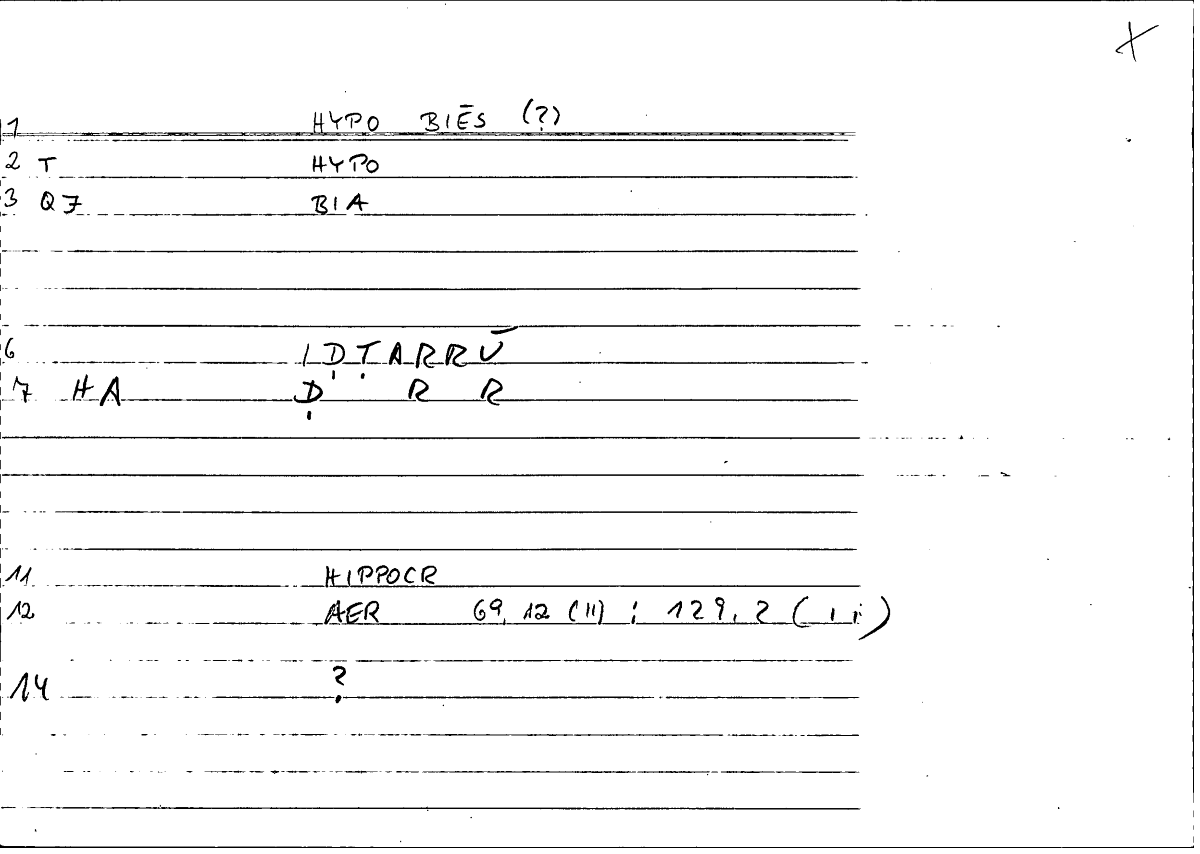 1 HYPO BIĒS (?)
2 T HYPO
3 Q7 BIA
6 IḌṬARRŪ
7 HA Ḍ R R
11 HIPPOCR
12 AER 69, 12 (11) : 129, 2 (11)
14 ?